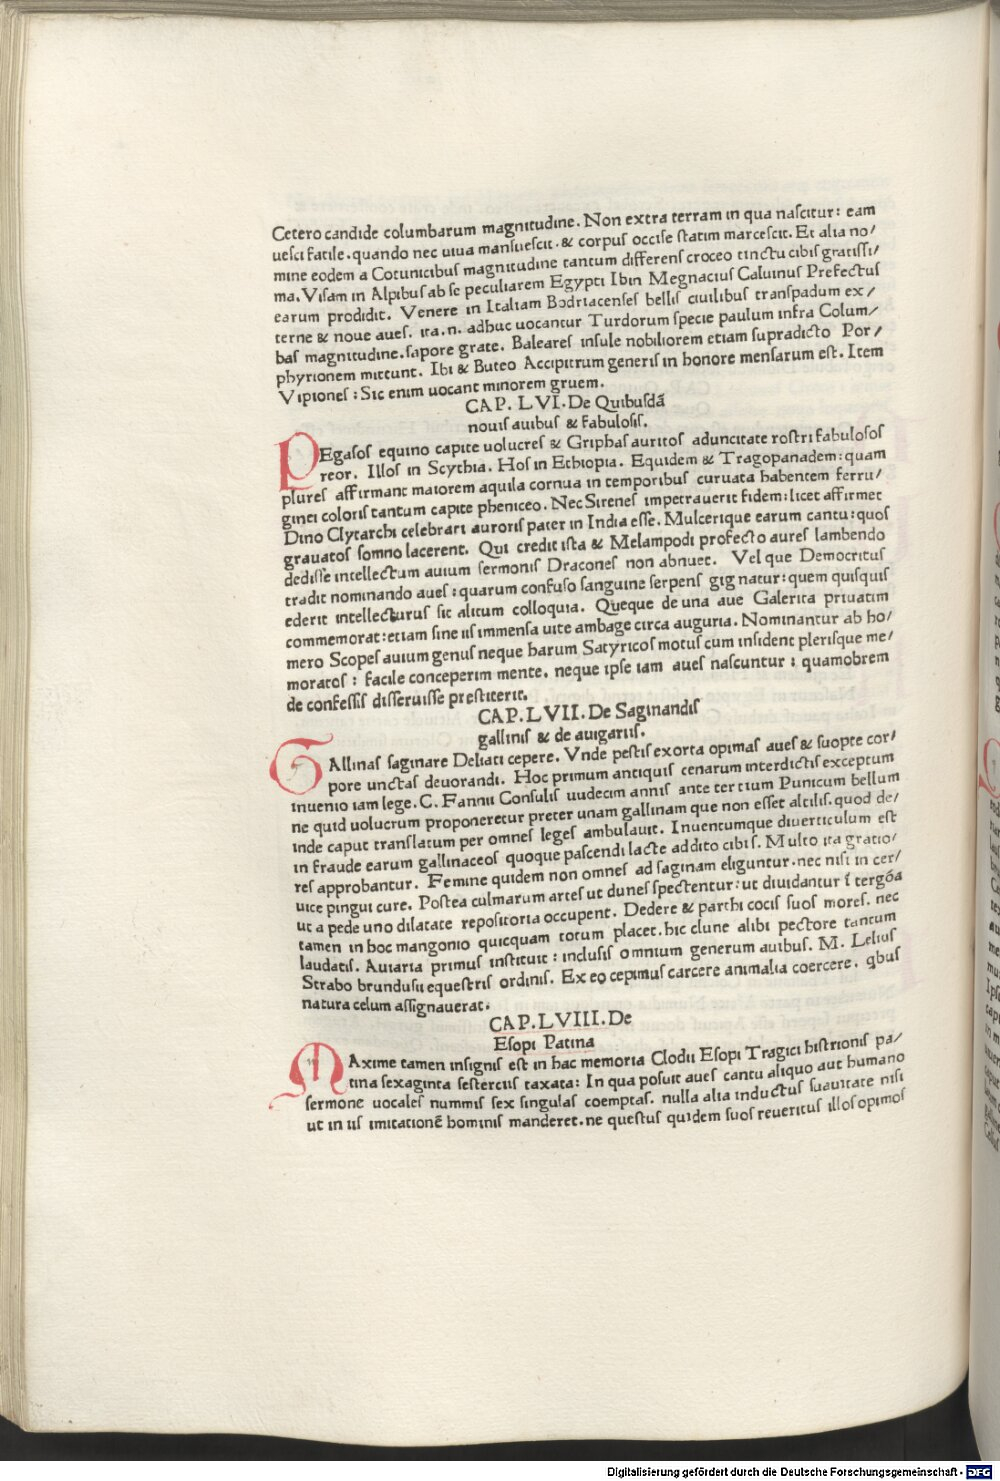 Cetero candide columbarum magnitudine. Non extra terram in qua naſcitur: eam
ueſci facile. quando nec uiua manſueſcit. & corpus occiſe ſtatim marceſcit. Et alia no/
mine eodem a Cotunicibuſ magnitudine tantum differenſ croceo tinctu cibiſ gratiſſi/
ma. Viſam in Alpibuſ ab ſe peculiarem Egypti Ibin Megnaciuſ Caluinuſ Prefectuſ
earum prodidit. Venere in Italiam Bedriacenſeſ belliſ ciuilibuſ tranſpadum ex/
terne & noue aueſ. ita.n. adhuc uocantur Turdorum ſpecie paulum infra Colum/
baſ magnitudine. ſapore grate. Baleareſ inſule nobiliorem etiam ſupradicto Por/
phyrionem mittunt. Ibi & Buteo Accipitrum generiſ in honore menſarum eſt. Item
Vipioneſ: Sic enim uocant minorem gruem.
CAP. LVI. De Quibuſdā
nouiſ auibuſ & fabuloſiſ.
PEgaſoſ equino capite uolucreſ & Griphaſ auritoſ aduncitate roſtri fabuloſoſ
reor. Illoſ in Scythia. Hoſ in Ethiopia. Equidem & Tragopanadem: quam
plureſ affirmant maiorem aquila cornua in temporibuſ curuata habentem ferru/
ginei coloriſ tantum capite pheniceo. Nec Sireneſ impetrauerit fidem: licet affirmet
Dino Clytarchi celebrari auroriſ pater in India eſſe. Mulcerique earum cantu: quoſ
grauatoſ ſomno lacerent. Qui credit iſta & Melampodi profecto aureſ lambendo
dediſſe intellectum auium ſermoniſ Draconeſ non abnuet. Vel que Democrituſ
tradit nominando aueſ: quarum confuſo ſanguine ſerpenſ gignatur: quem quiſquiſ
ederit intellecturuſ ſic alitum colloquia. Queque de una aue Galerita priuatim
commemorat: etiam ſine iiſ immenſa uite ambage circa auguria. Nominantur ab ho/
mero Scopeſ auium genuſ neque harum Satyricoſ motuſ cum inſident pleriſque me/
moratoſ: facile conceperim mente. neque ipſe iam aueſ naſcuntur: quamobrem
de confeſſiſ diſſeruiſſe preſtiterit.
CAP. LVII. De Saginandiſ
galliniſ & de auigariiſ.
GAllinaſ ſaginare Deliaci cepere. Vnde peſtiſ exorta opimaſ aueſ & ſuopte cor/
pore unctaſ deuorandi. Hoc primum antiquiſ cenarum interdictiſ exceptum
inuenio iam lege. C. Fannii Conſuliſ uudecim anniſ ante tertium Punicum bellum
ne quid uolucrum proponeretur preter unam gallinam que non eſſet altiliſ. quod de/
inde caput tranſlatum per omneſ legeſ ambulauit. Inuentumque diuerticulum eſt
in fraude earum gallinaceoſ quoque paſcendi lacte addito cibiſ. Multo ita gratio/
reſ approbantur. Femine quidem non omneſ ad ſaginam eliguntur. nec niſi in cer/
uice pingui cute. Poſtea culmarum arteſ ut duneſ ſpectentur: ut diuidantur ī tergōa
ut a pede uno dilatate repoſitoria occupent. Dedere & parthi cociſ ſuoſ moreſ. nec
tamen in hoc mangonio quicquam totum placet. hic clune alibi pectore tantum
laudatiſ. Auiaria primuſ inſtituit: incluſiſ omnium generum auibuſ. M. Leliuſ
Strabo brunduſii equeſtriſ ordiniſ. Ex eo cepimuſ carcere animalia coercere. qbuſ
natura celum aſſignauerat.
CAP. LVIII. De
Eſopi Patina
MAxime tamen inſigniſ eſt in hac memoria Clodii Eſopi Tragici hiſtrioniſ pa/
tina ſexaginta ſeſterciiſ taxata: In qua poſuit aueſ cantu aliquo aut humano
ſermone uocaleſ nummiſ ſex ſingulaſ coemptaſ. nulla alia inductuſ ſuauitate niſi
ut in iiſ imitationē hominiſ manderet. ne queſtuſ quidem ſuoſ reuerituſ illoſ opimoſ
Digitalisierung gefördert durch die Deutsche Forschungsgemeinschaft - DFG